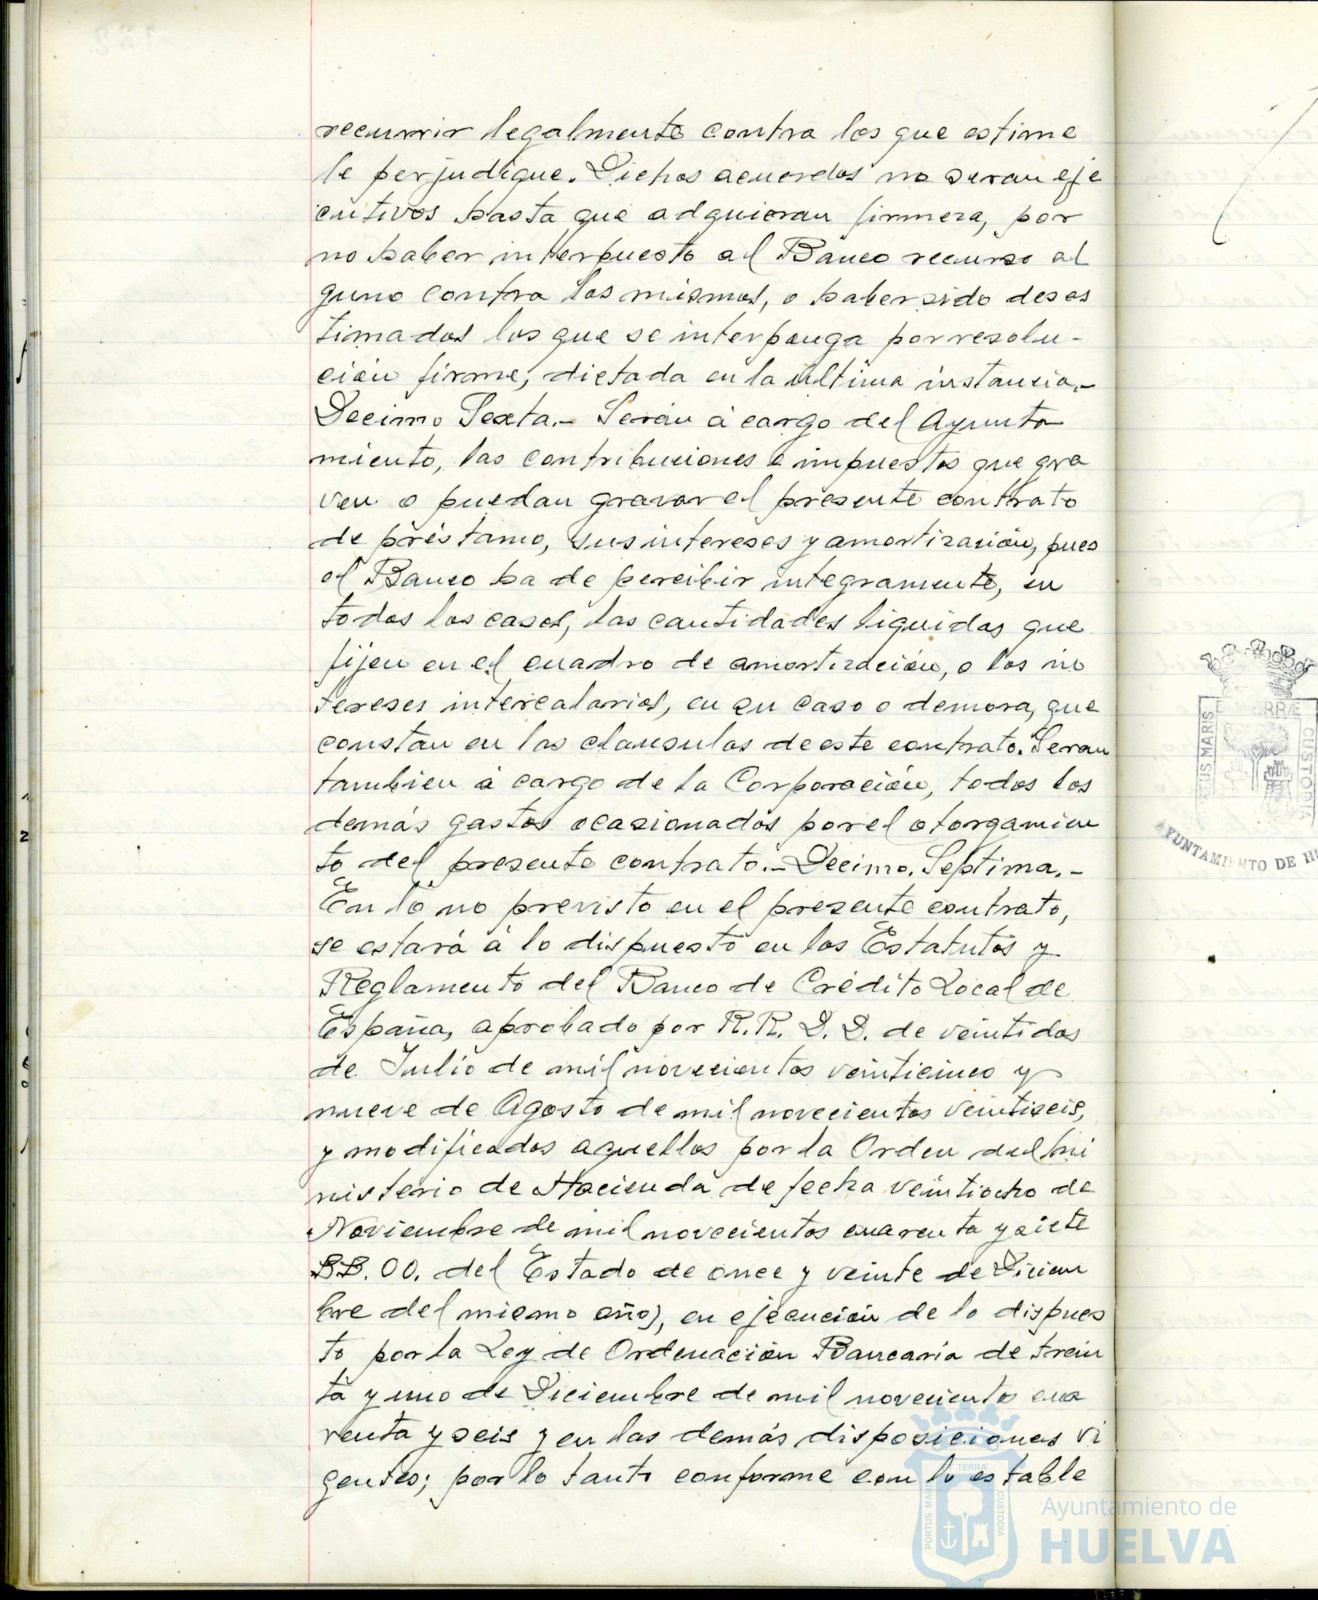 recurrir legalmente contra los que estime
le perjudique. Dichos acuerdos no seran eje
cutivos hasta que adquieran firmeza, por
no haber interpuesto el Banco recurso al
guno contra los mismos, o haber sido deses
timados los que se interponga por resolu-
ción firme, dictada en la última instancia.-
Decimo Sexta.- Serán á cargo del Ayunta
miento, las contribuciones e impuestos que gra
ven o puedan gravar el presente contrato
de préstamo, sus intereses y amortización, pues
el Banco ha de percibir integramente, en
todos los casos, las cantidades liquidas que
fijen en el cuadro de amortización, o los in
tereses intercalarios, en su caso o demora, que
constan en las clausulas de este contrato. Seran
tambien á cargo de la Corporación, todos los
demás gastos ocasionados por el otorgamien
to del presente contrato.- Decimo Septima.-
En lo no previsto en el presente contrato,
se estará á lo dispuesto en los Estatutos y
Reglamento del Banco de Crédito Local de
España, aprobado por R.R. D.D. de veintidos
de Julio de mil novecientos veinticinco y
nueve de Agosto de mil novecientos veintiseis,
y modificados aquellos por la Orden del Mi
nisterio de Hacienda de fecha veintiocho de
Noviembre de mil novecientos cuarenta y siete
BB. OO. del Estado de once y veinte de Diciem
bre del mismo año), en ejecución de lo dispues
to por la Ley de Ordenación Bancaria de trein
ta y uno de Diciembre de mil novecientos cua
renta y seis y en las demás disposiciones vi
gentes; por lo tanto conforme con lo estable
PORTUS MARIS
TERRAE
CUSTODIA
AYUNTAMIENTO DE H
PORTUS MARIS
TERRAE
CUSTODIA
Ayuntamiento de
HUELVA